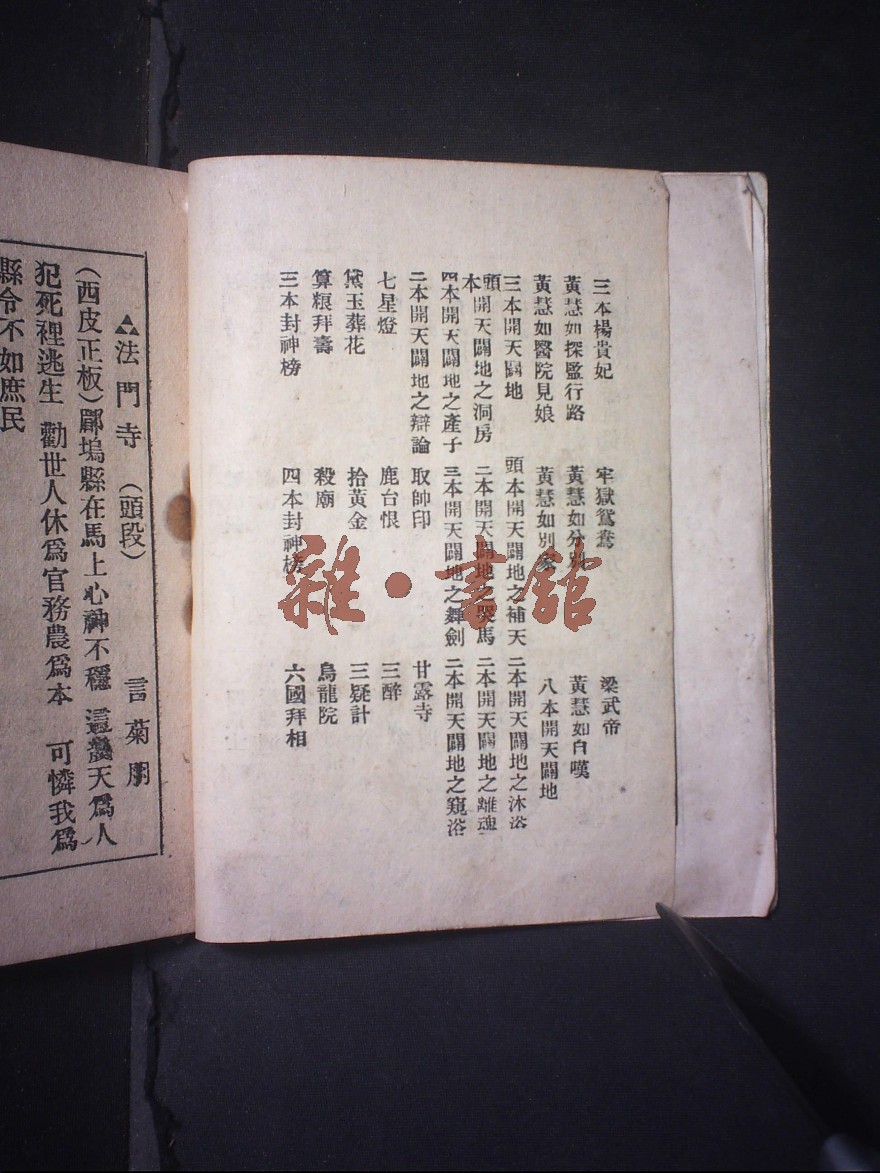 三本楊貴妃 牢獄鴛鴦 梁武帝
黃慧如探監行路 黃慧如分別 黃慧如自嘆
黃慧如醫院見娘 黃慧如別家 八本開天闢地
三本開天闢地 頭本開天闢地之補天 二本開天闢地之沐浴
頭本開天闢地之洞房 二本開天闢地之哭馬 二本開天闢地之離魂
四本開天闢地之產子 三本開天闢地之舞劍 二本開天闢地之窺浴
二本開天闢地之辯論 取帥印 甘露寺
七星燈 鹿台恨 三醉
黛玉葬花 拾黃金 三疑計
算粮拜壽 殺廟 烏龍院
三本封神榜 四本封神榜 六國拜相
法門寺（頭段） 言菊朋
（西皮正板）郿塢縣在馬上心神不穩 這天爲人
犯死裡逃生 勸世人休爲官務農爲本 可憐我爲
縣令不如庶民
雜·書館